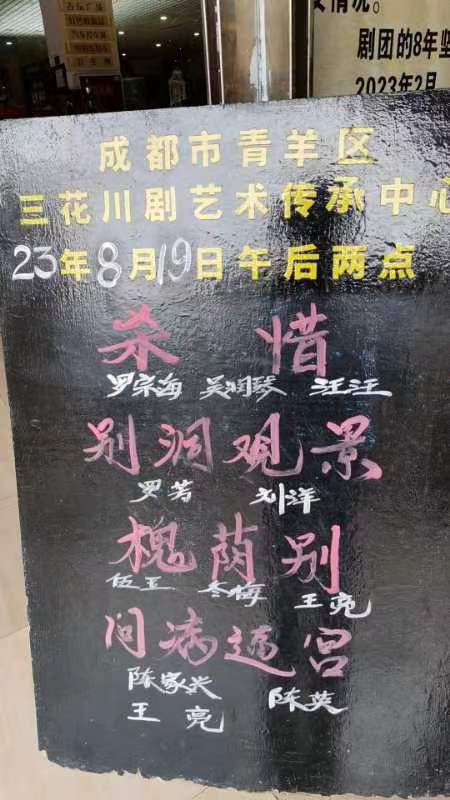 古玩广场
要情况。
剧团的8年坚
2023年2月
成都市青羊区
三花川剧艺术传承中心
23年8月19日午后两点
杀 惜
罗宗海 吴润琴 汪汪
别洞观景
罗芳 刘洋
槐荫别
伍王 冬梅 王亮
问病逼宫
陈家兴 陈英
王 亮